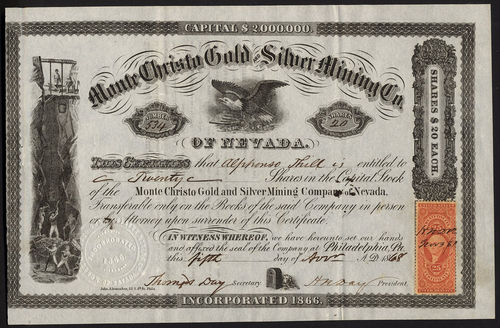 CAPITAL $2000.000.
Monte Christo Gold and Silver Mining Co.
NUMBER
534
SHARES
20
OF NEVADA.
This Certifies that Alphonso Hill is entitled to
Twenty Shares in the Capital Stock
of the Monte Christo Gold and Silver Mining Company of Nevada.
Transferable only on the Books of the said Company in person
or by Attorney upon surrender of this Certificate.
IN WITNESS WHEREOF, we have hereunto set our hands
and affixed the seal of the Company at Philadelphia, Pa.
this fifth day of Novr A.D. 1868
Thomas Day Secretary H N Day President.
INCORPORATED 1866.
SHARES $20 EACH.
25